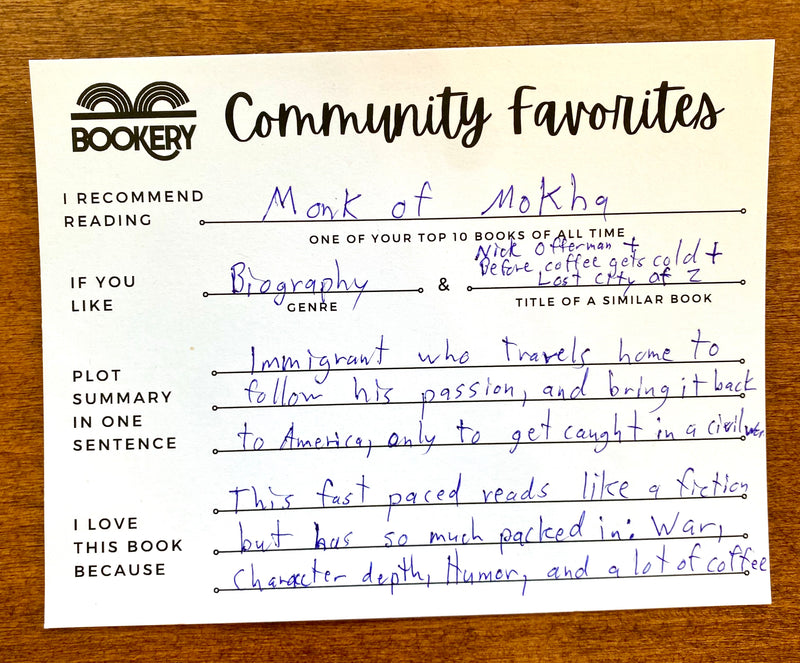 BOOKERY
Community Favorites
I RECOMMEND
READING
Monk of Mokha
ONE OF YOUR TOP 10 BOOKS OF ALL TIME
IF YOU
LIKE
Biography
GENRE
&
Nick Offerman +
Before coffee gets cold +
Lost city of Z
TITLE OF A SIMILAR BOOK
PLOT
SUMMARY
IN ONE
SENTENCE
Immigrant who travels home to
follow his passion, and bring it back
to America, only to get caught in a civil war
I LOVE
THIS BOOK
BECAUSE
This fast paced reads like a fiction
but has so much packed in: War,
Character depth, Humor, and a lot of coffee